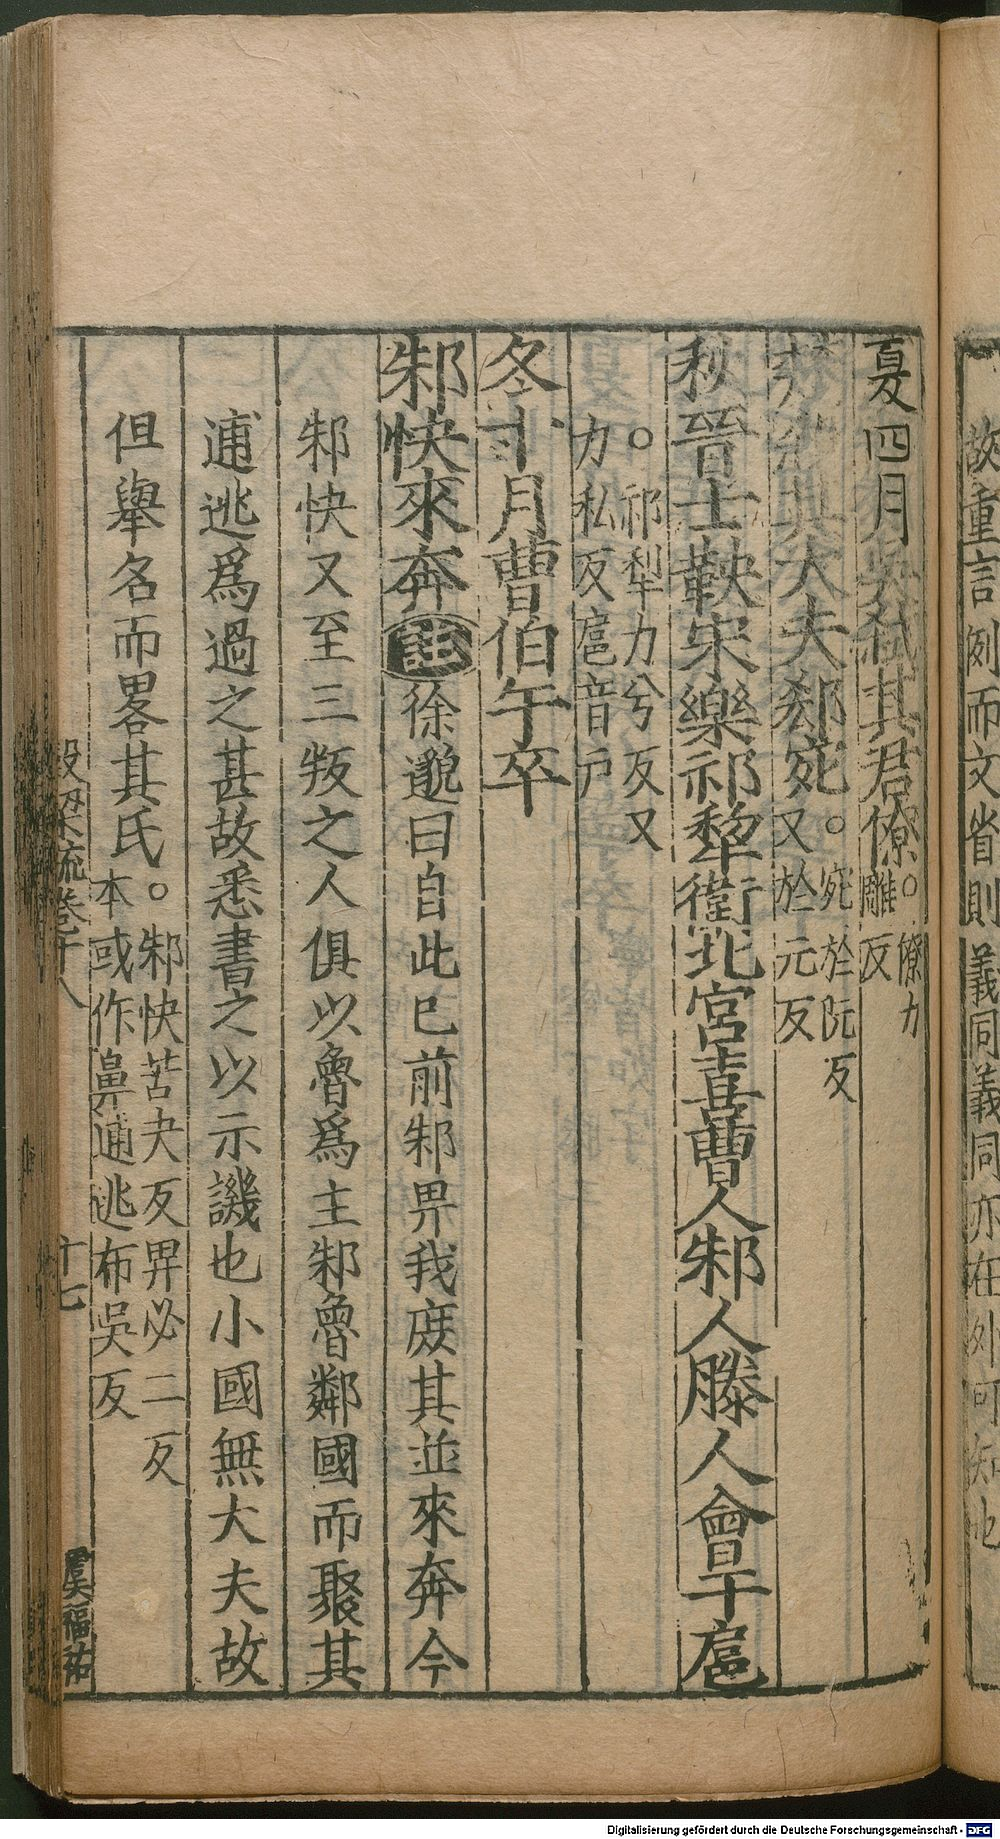 夏四月吳弒其君僚。僚力
雕反
楚殺其大夫郄宛。宛於阮反
又於元反
秋晉士鞅宋樂祁犂衛北宮喜曹人邾人滕人會于扈
。祁犂力兮反又
力私反扈音戸
冬十月曹伯午卒
邾快來奔註徐邈曰自此巳前邾畀我庻其並來奔今
邾快又至三叛之人俱以魯爲主邾魯鄰國而聚其
逋逃爲過之甚故悉書之以示譏也小國無大夫故
但舉名而畧其氏。邾快苦夬反畀必二反
本或作鼻逋逃布吳反
穀梁疏卷十八
十七
虞福祐
故重言例而文省則義同義同亦在外可知也
Digitalisierung gefördert durch die Deutsche Forschungsgemeinschaft - DFG